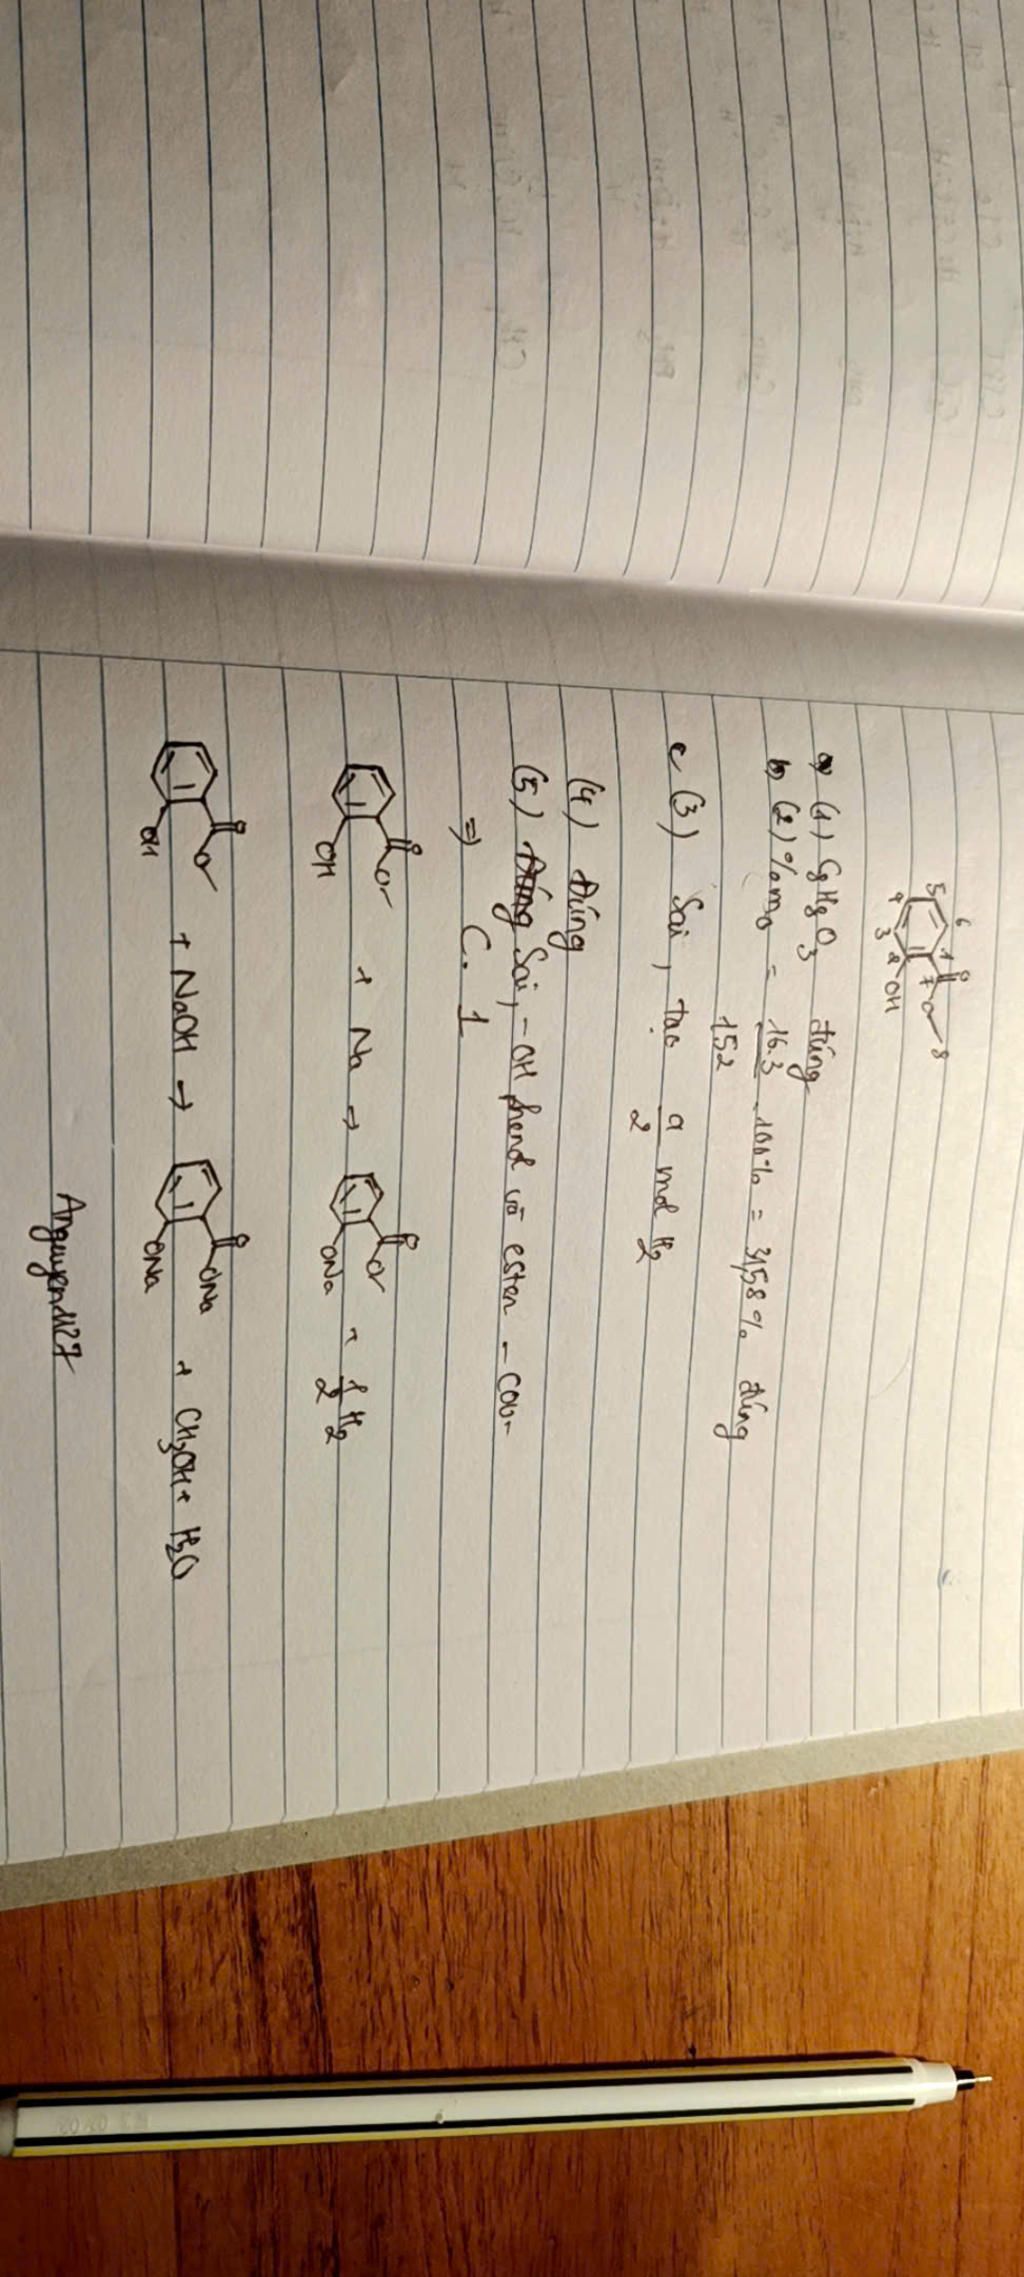 5 6 1 O
4 3 2 7 O 8
OH
a) (1) C8H8O3 đúng
b) (2) %mO = 16.3/152 .100% = 31,58% đúng
c (3) Sai, tạo a/2 mol H2
(4) Đúng
(5) Đúng Sai, -OH phenol và ester -COO-
=> C. 1
O O OH + Na → O O ONa + 1/2 H2
O O OH + NaOH → O ONa ONa + CH3OH + H2O
Anguyen1127